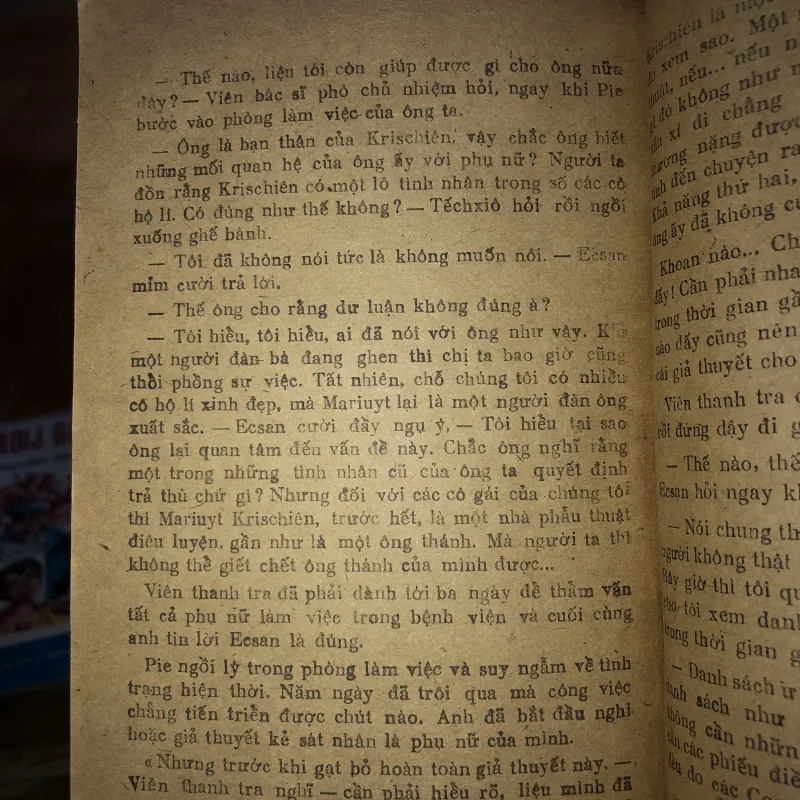 — Thế nào, liệu tôi còn giúp được gì cho ông nữa
đây? — Viên bác sĩ phó chủ nhiệm hỏi, ngay khi Pie
bước vào phòng làm việc của ông ta.
— Ông là bạn thân của Krischiên, vậy chắc ông biết
những mối quan hệ của ông ấy với phụ nữ? Người ta
đồn rằng Krischiên có một lô tình nhân trong số các cô
hộ lí. Có đúng như thế không? — Têchxiô hỏi rồi ngồi
xuống ghế bành.
— Tôi đã không nói tức là không muốn nói. — Ecsan
mỉm cười trả lời.
— Thế ông cho rằng dư luận không đúng à?
— Tôi hiểu, tôi hiểu, ai đã nói với ông như vậy. Khi
một người đàn bà đang ghen thì chị ta bao giờ cũng
thổi phồng sự việc. Tất nhiên, chỗ chúng tôi có nhiều
cô hộ lí xinh đẹp, mà Mariuyt lại là một người đàn ông
xuất sắc. — Ecsan cười đầy ngụ ý, — Tôi hiểu tại sao
ông lại quan tâm đến vấn đề này. Chắc ông nghĩ rằng
một trong những tình nhân cũ của ông ta quyết định
trả thù chứ gì? Nhưng đối với các cô gái của chúng tôi
thì Mariuyt Krischiên, trước hết, là một nhà phẫu thuật
điêu luyện, gần như là một ông thánh. Mà người ta thì
không thể giết chết ông thánh của mình được...
Viên thanh tra đã phải dành tới ba ngày để thẩm vấn
tất cả phụ nữ làm việc trong bệnh viện và cuối cùng
anh tin lời Ecsan là đúng.
Pie ngồi lỳ trong phòng làm việc và suy ngẫm về tình
trạng hiện thời. Năm ngày đã trôi qua mà công việc
chẳng tiến triển được chút nào. Anh đã bắt đầu nghi
hoặc giả thuyết kẻ sát nhân là phụ nữ của mình.
« Nhưng trước khi gạt bỏ hoàn toàn giả thuyết này, —
Viên thanh tra nghĩ — cần phải hiểu rõ, liệu mình đã
Krischiên là một
xem sao. Một
thuật, nếu... nếu
đó không như
xỉ đi chẳng
nặng được
đến chuyện ra
khả năng thứ hai,
ông ấy đã không
Khoan nào... Ch
đấy! Cần phải nha
trong thời gian gầ
nào đấy cũng nên
cái giả thuyết cho
Viên thanh tra
rồi đứng dậy đi g
— Thế nào, thế
Ecsan hỏi ngay kh
— Nói chung th
người không thật
Bây giờ thì tôi qu
cho tôi xem danh
trong thời gian g
— Danh sách ư
danh sách như
không cần những
các phiếu điề
do các